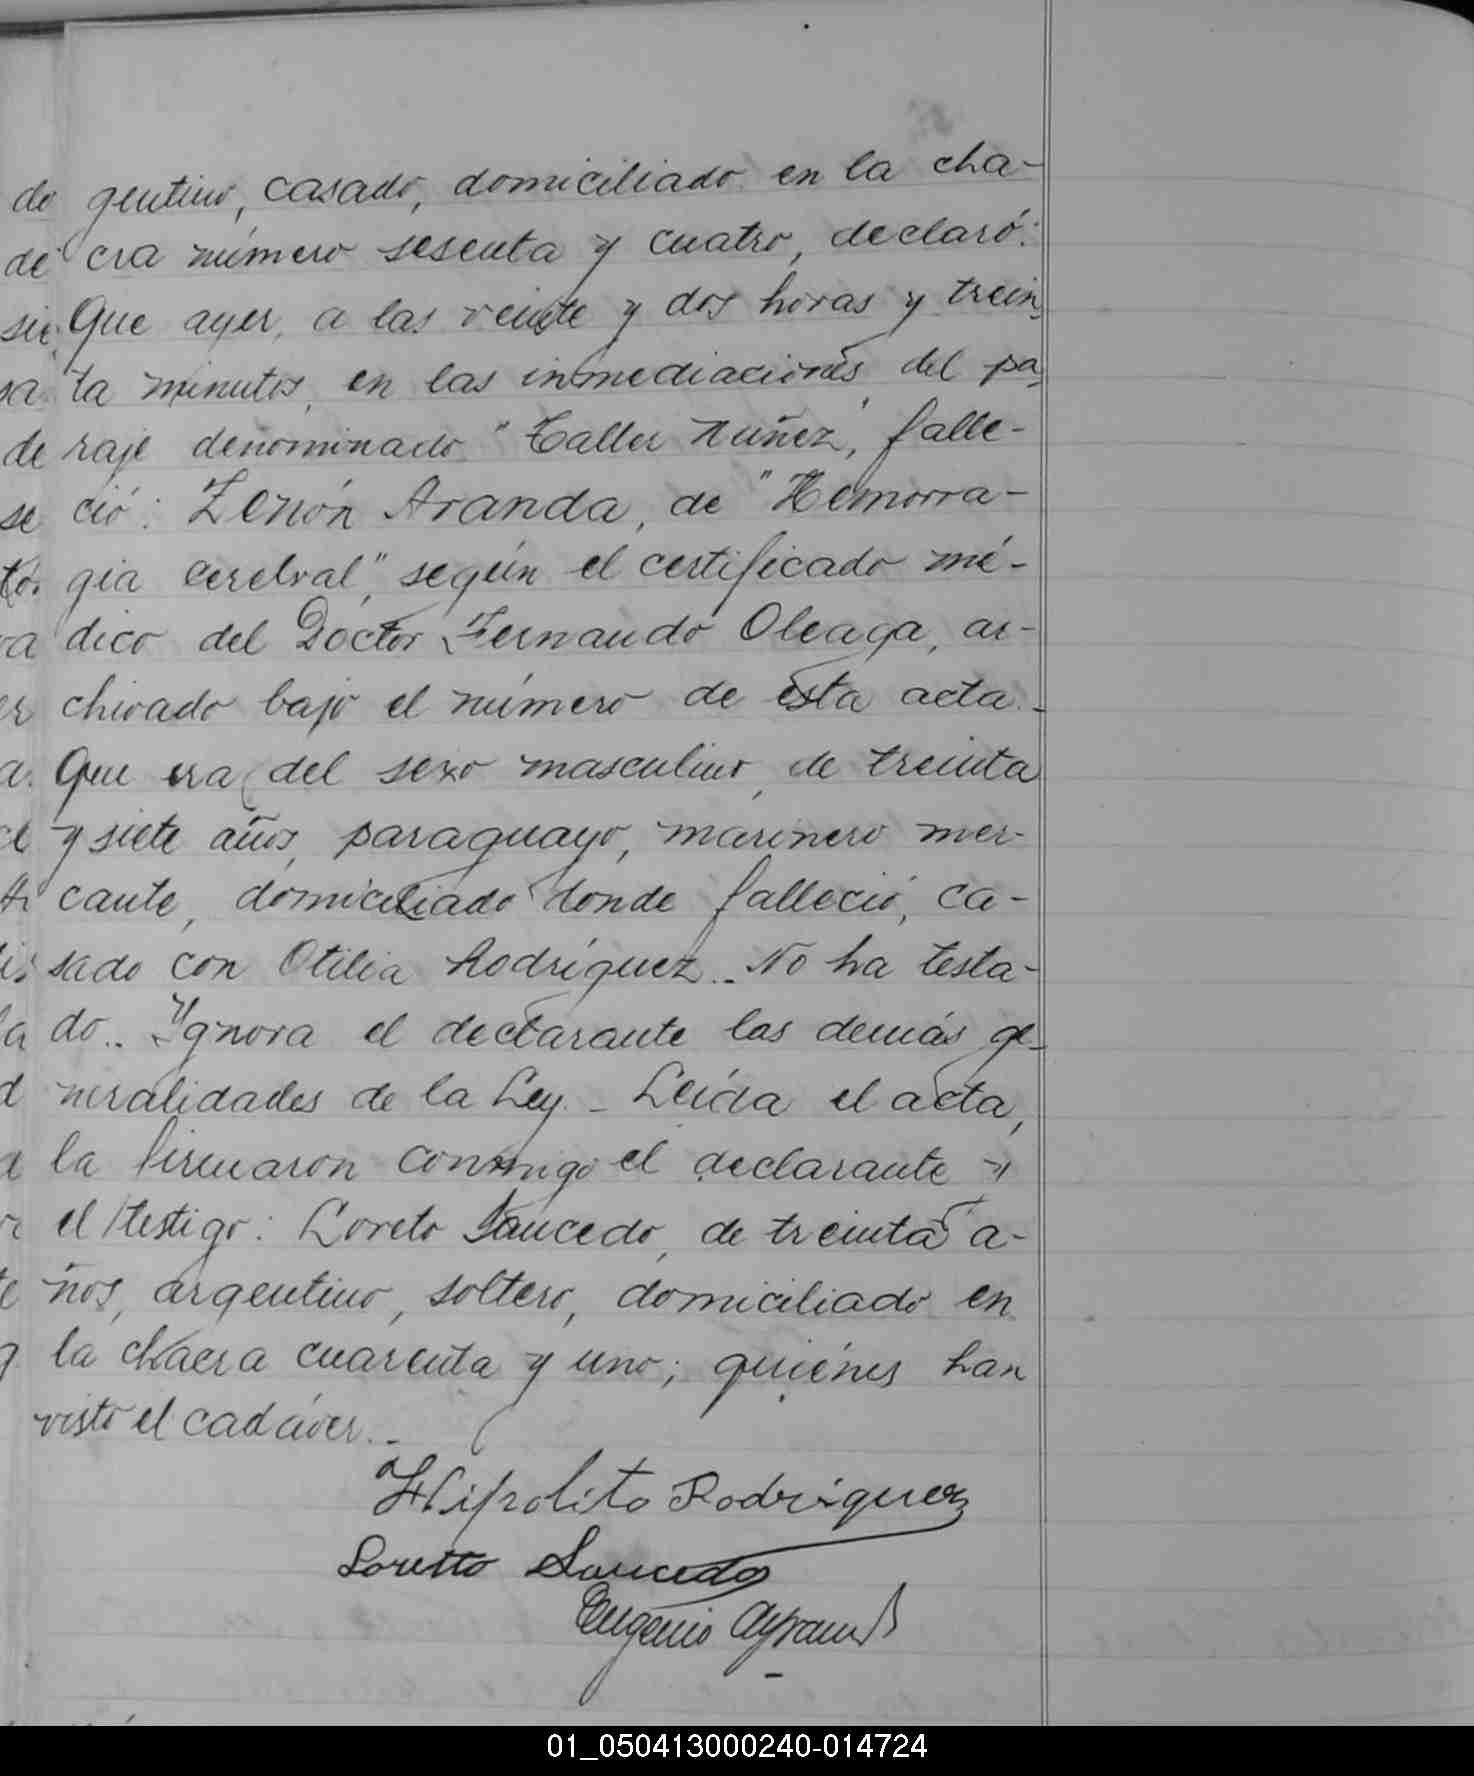 do gentino, casado, domiciliado en la cha-
de cra número sesenta y cuatro, declaró:
sie Que ayer, a las veinte y dos horas y trein
sa ta minutos, en las inmediaciones del pa
de raje denominado "Taller Nuñez", falle-
se ció: Zenón Aranda, de "Hemorra-
tó. gia cerebral", según el certificado mé-
ra dico del Doctor Fernando Oleaga, ar-
er chivado bajo el número de esta acta.-
a. Que era del sexo masculino, de treinta
el y siete años, paraguayo, marinero mer-
cante, domiciliado donde falleció, ca-
sado con Otilia Rodríguez.- No ha testa-
la do.- Ygnora el declarante las demás ge-
d neralidades de la Ley.- Leída el acta,
a la firmaron conmigo el declarante y
el testigo: Loreto Saucedo, de treinta a-
te ños, argentino, soltero, domiciliado en
la chacra cuarenta y uno; quiénes han
visto el cadáver.-
Hipolito Rodriguez
Loretto Saucedo
Eugenio
01_050413000240-014724